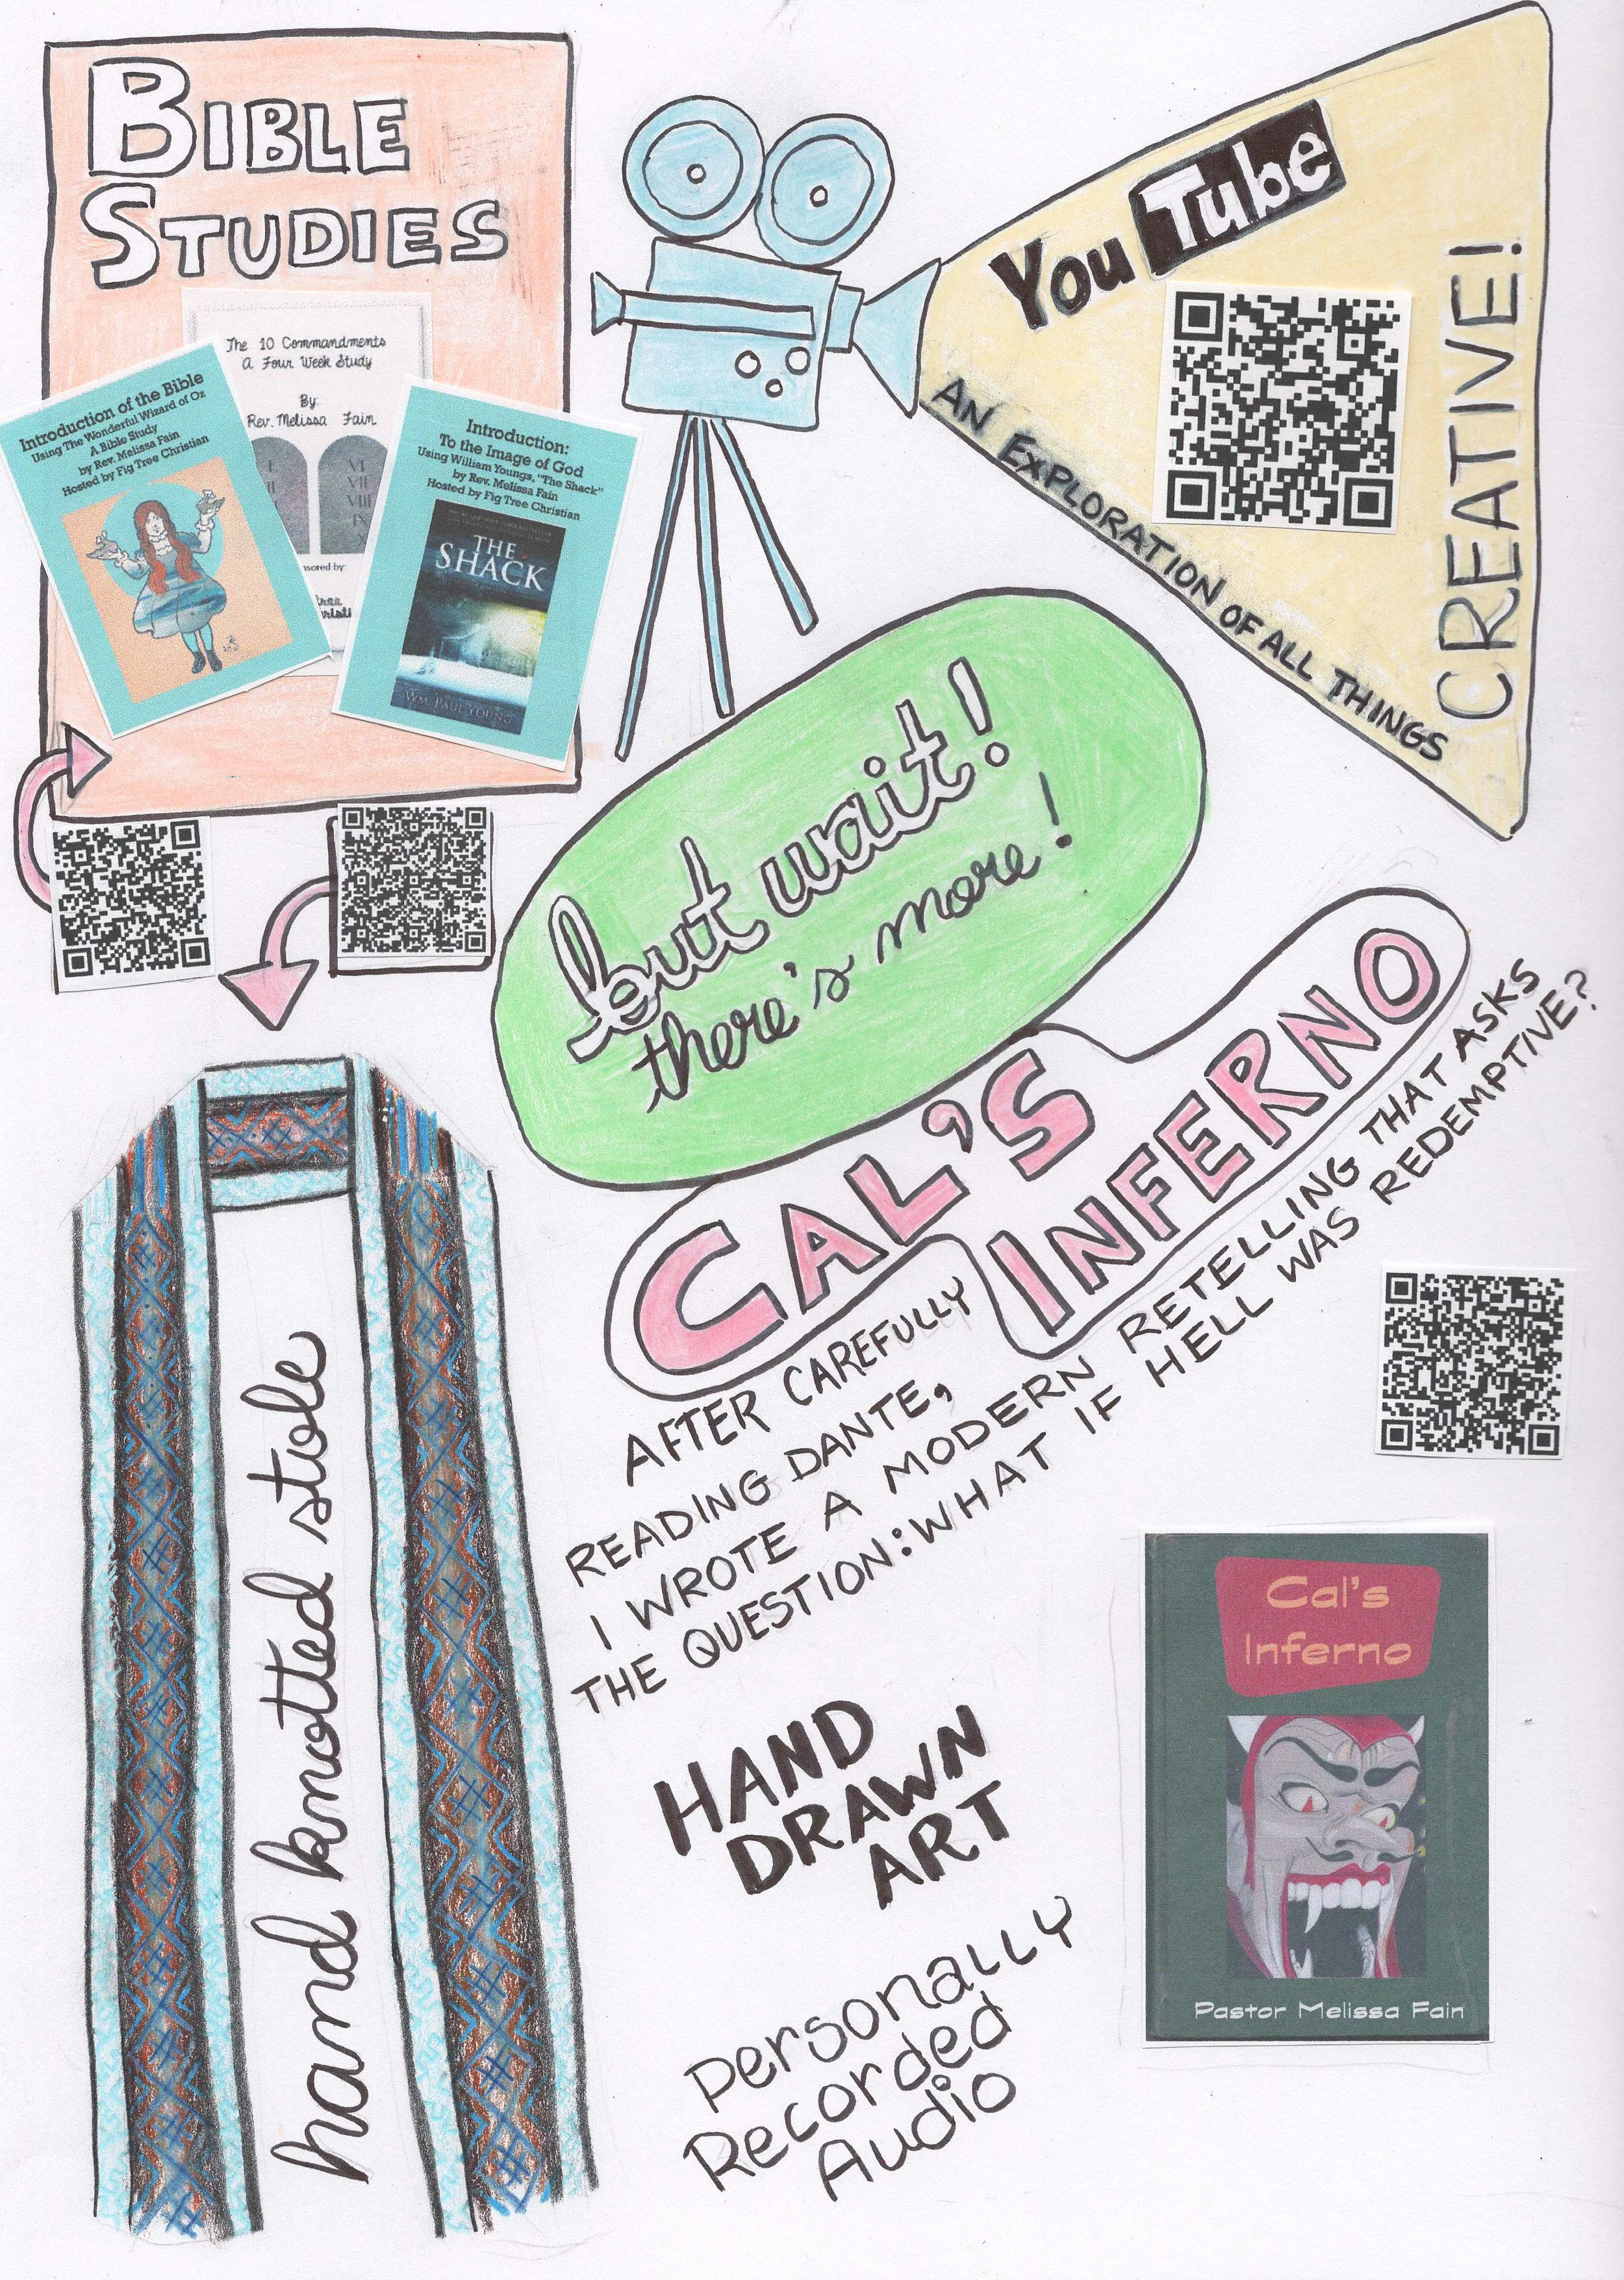 BIBLE
STUDIES
The 10 Commandments
A Four Week Study
By:
Rev. Melissa Fain
I
VI
VII
VIII
IX
Introduction of the Bible
Using The Wonderful Wizard of Oz
A Bible Study
by Rev. Melissa Fain
Hosted by Fig Tree Christian
Introduction:
To the Image of God
Using William Youngs, "The Shack"
by Rev. Melissa Fain
Hosted by Fig Tree Christian
THE
SHACK
WM. PAUL YOUNG
You Tube
AN EXPLORATION OF ALL THINGS
CREATIVE!
but wait!
there's more!
CAL'S
INFERNO
AFTER CAREFULLY
READING DANTE,
I WROTE A MODERN RETELLING THAT ASKS
THE QUESTION: WHAT IF HELL WAS REDEMPTIVE?
hand knotted stole
HAND
DRAWN
ART
Personally
Recorded
Audio
Cal's
Inferno
Pastor Melissa Fain